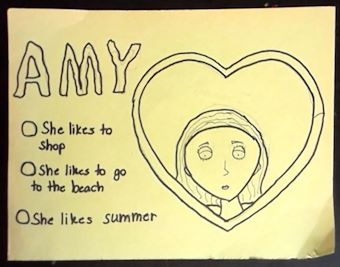 AMY
She likes to
shop
She likes to go
to the beach
She likes summer